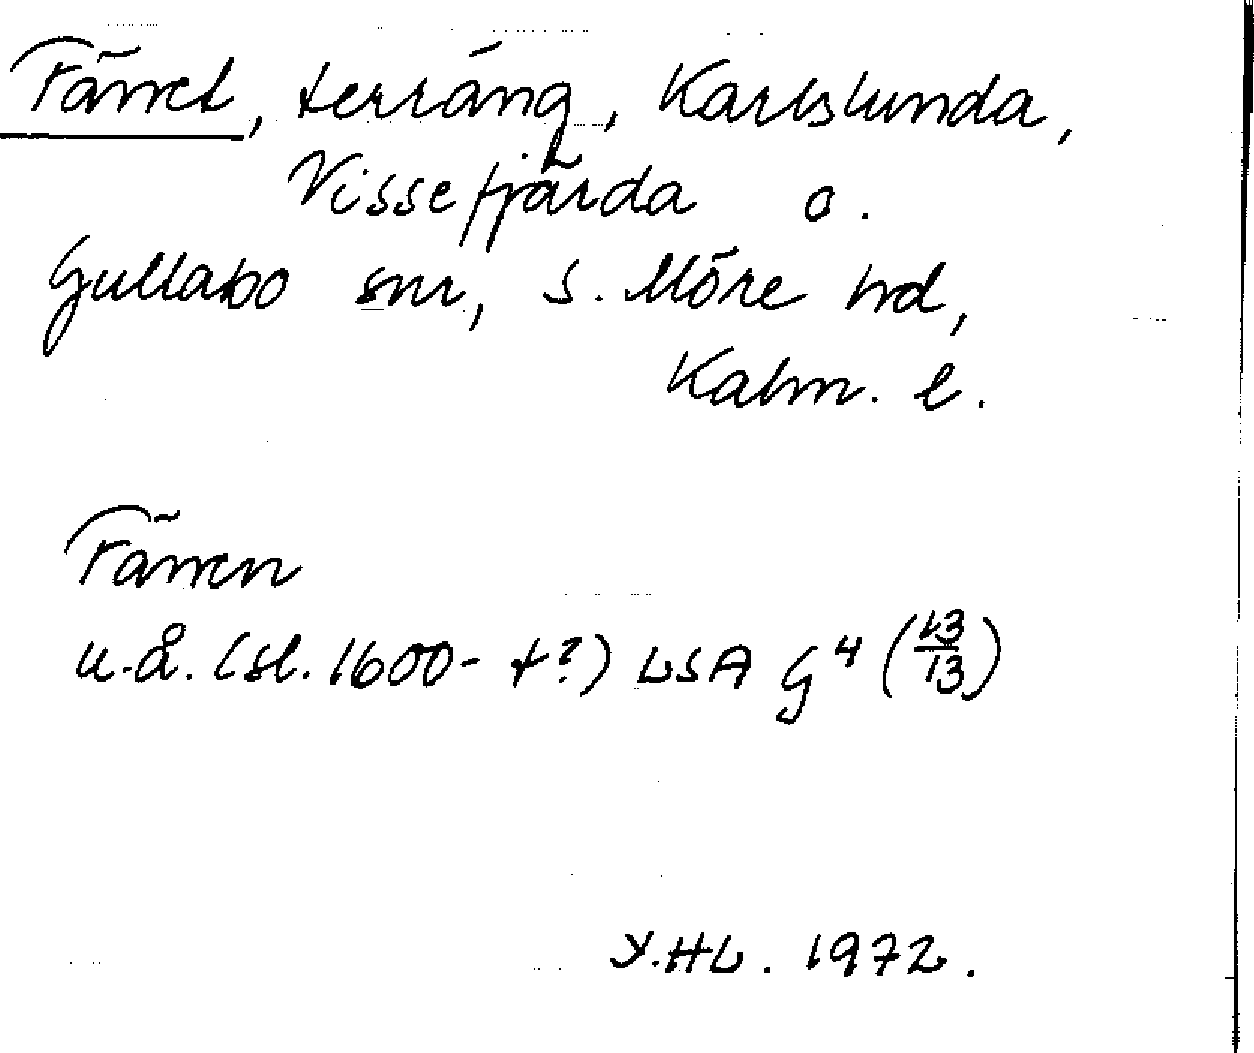 Färret, terräng, Karlslunda,
Vissefjärda o.
Gullabo snr, S. Möre hd,
Kalm. l.
Färren
u.å. (sl. 1600-t?) LSA G4 (13/13)
Y.HL. 1972.